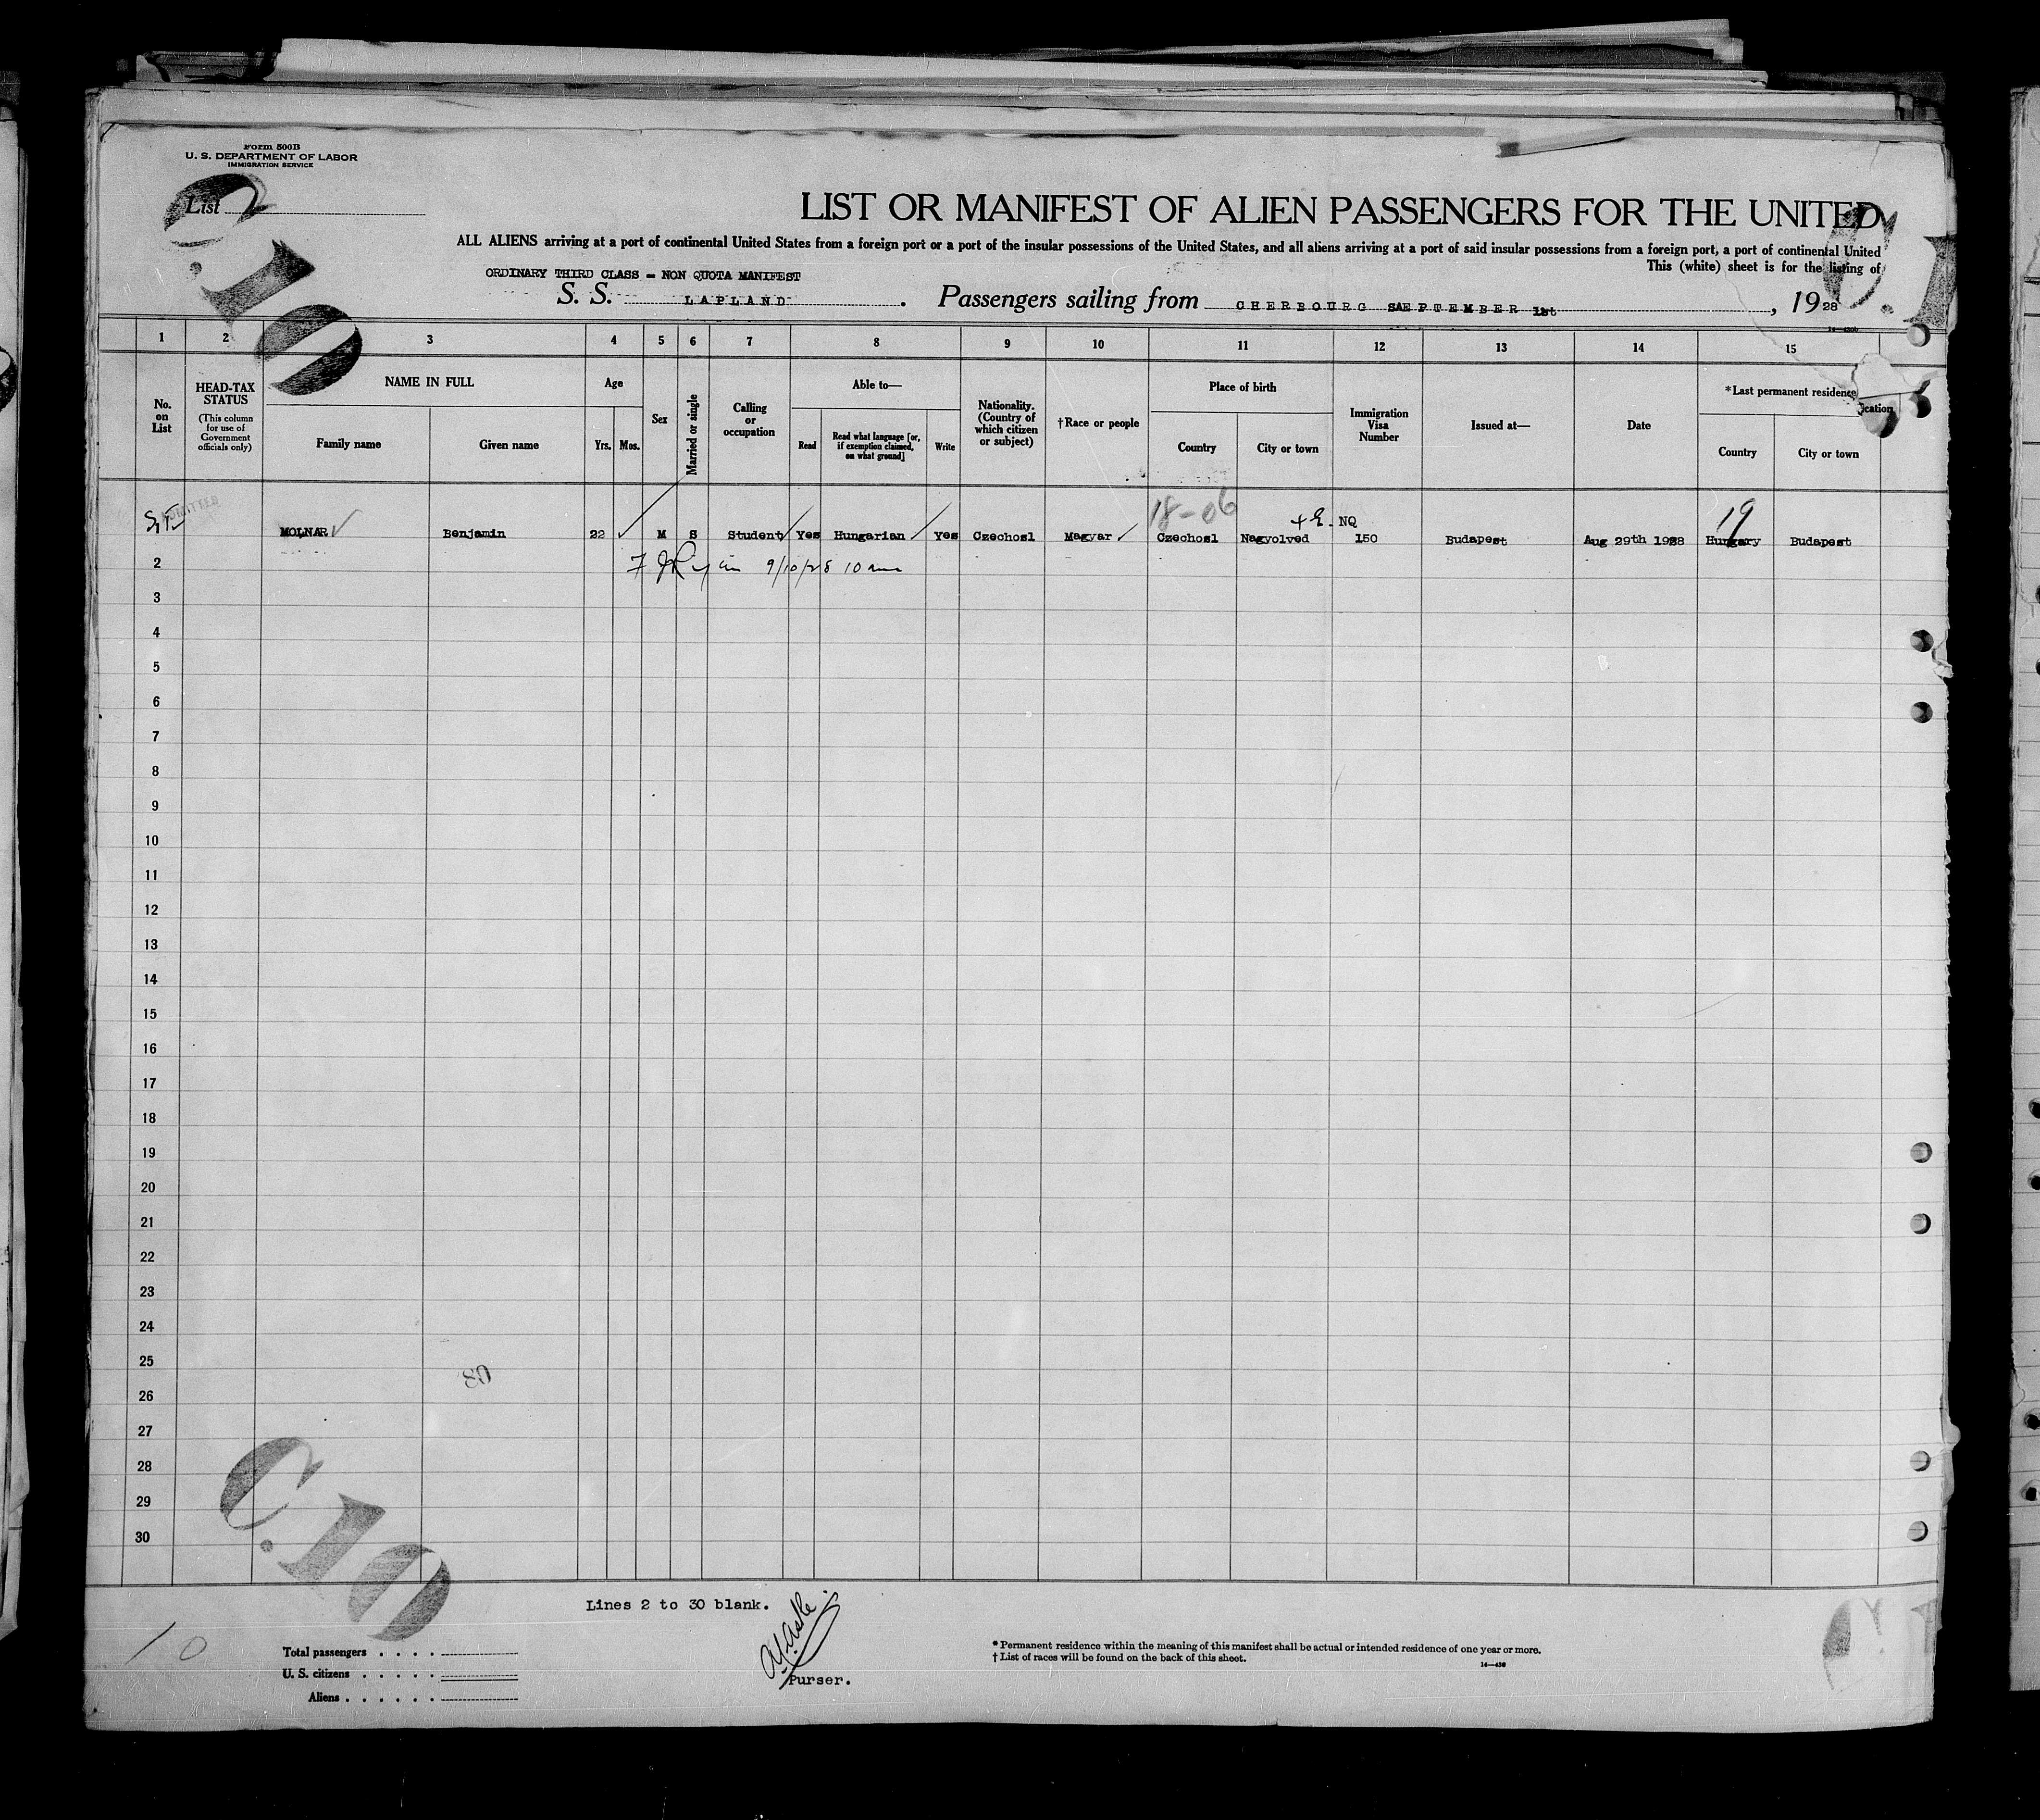 Form 500B
U. S. DEPARTMENT OF LABOR
IMMIGRATION SERVICE
List 2
C.10
LIST OR MANIFEST OF ALIEN PASSENGERS FOR THE UNITED
ALL ALIENS arriving at a port of continental United States from a foreign port or a port of the insular possessions of the United States, and all aliens arriving at a port of said insular possessions from a foreign port, a port of continental United
This (white) sheet is for the listing of
ORDINARY THIRD CLASS - NON QUOTA MANIFEST
S. S. LAPLAND. Passengers sailing from CHERBOURG SAEPTEMBER 1st, 1928
1 2 3 4 5 6 7 8 9 10 11 12 13 14 15
No. on List
HEAD-TAX STATUS
(This column for use of Government officials only)
NAME IN FULL
Family name
Given name
Age
Yrs.
Mos.
Sex
Married or single
Calling or occupation
Able to—
Read
Read what language [or, if exemption claimed, on what ground]
Write
Nationality. (Country of which citizen or subject)
†Race or people
Place of birth
Country
City or town
Immigration Visa Number
Issued at—
Date
*Last permanent residence
Country
City or town
ication
ADMITTED
18-06
19
NQ
MOLNAR Benjamin 22 M S Student Yes Hungarian Yes Czechosl Magyar Czechosl Nagyolved 150 Budapest Aug 29th 1928 Hungary Budapest
9/10/28 10 am
2
3
4
5
6
7
8
9
10
11
12
13
14
15
16
17
18
19
20
21
22
23
24
25
26
27
28
29
30
80
C.10
Lines 2 to 30 blank.
Purser.
10
Total passengers . . . .
U. S. citizens . . . . .
Aliens . . . . . .
* Permanent residence within the meaning of this manifest shall be actual or intended residence of one year or more.
† List of races will be found on the back of this sheet.
14—430